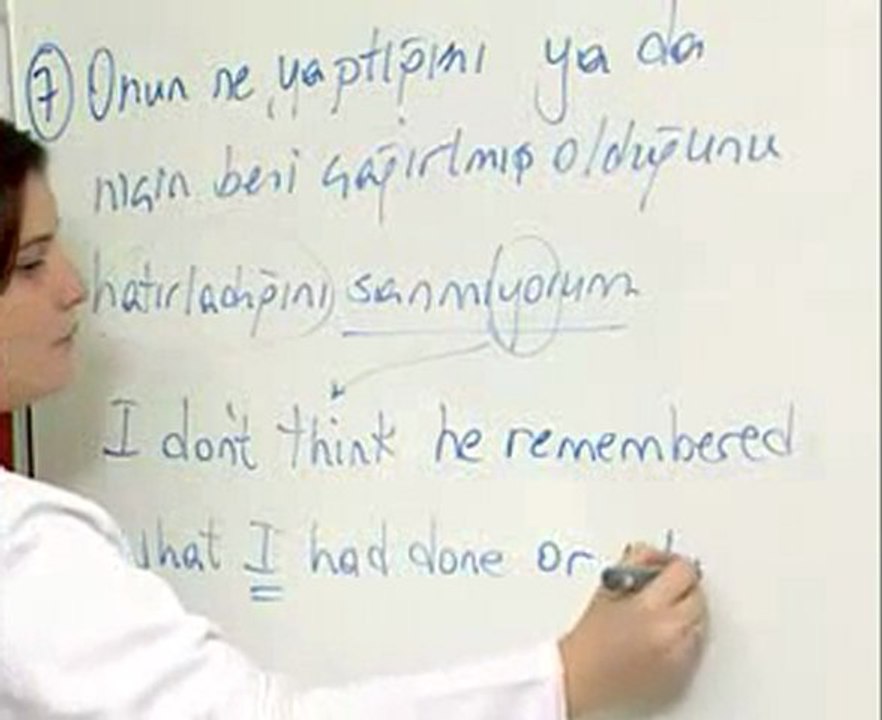 7 Onun ne yaptığımı ya da
niçin beni çağırtmış olduğunu
hatırladığını sanmıyorum
I don't think he remembered
what I had done or